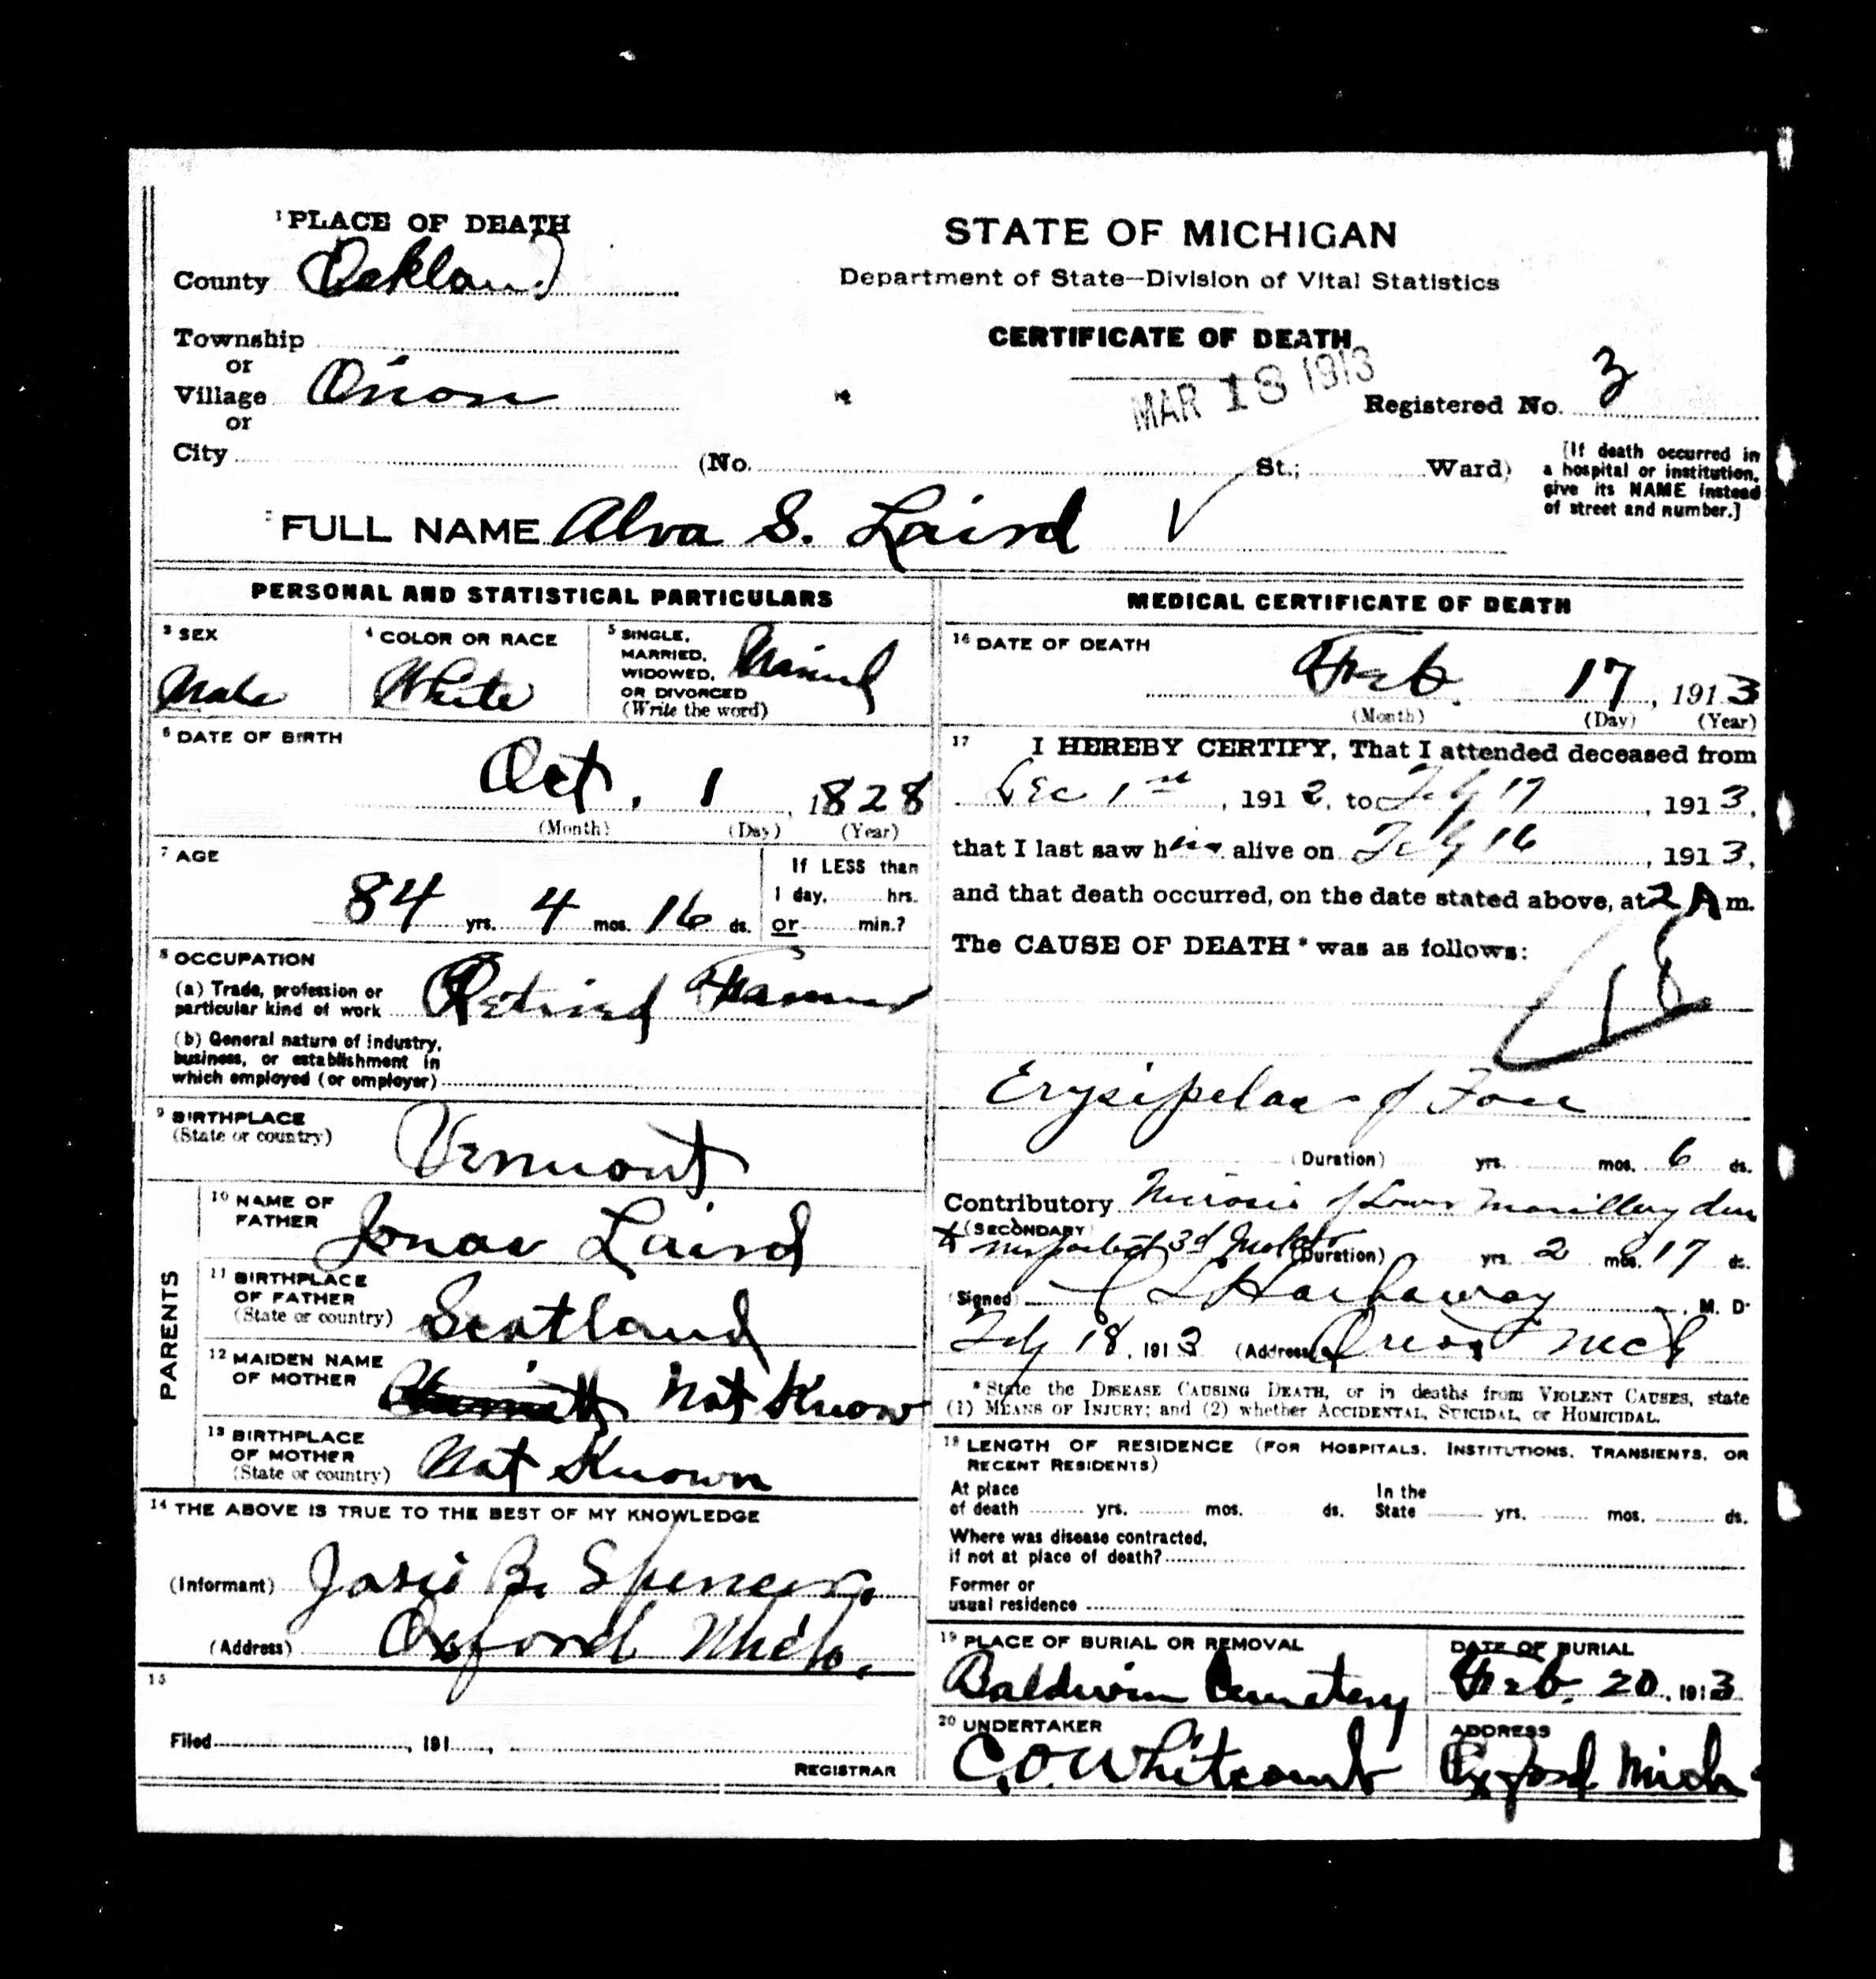 1 PLACE OF DEATH
County Oakland
Township
or
Village Orion
or
City (No. St.; Ward)
STATE OF MICHIGAN
Department of State—Division of Vital Statistics
CERTIFICATE OF DEATH
MAR 18 1913
Registered No. 3
[If death occurred in
a hospital or institution,
give its NAME instead
of street and number.]
2 FULL NAME Alva S. Laird
PERSONAL AND STATISTICAL PARTICULARS
3 SEX
Male
4 COLOR OR RACE
White
5 SINGLE,
MARRIED,
WIDOWED,
OR DIVORCED
(Write the word)
6 DATE OF BIRTH
Oct. 1, 1828
(Month) (Day) (Year)
7 AGE
84 yrs. 4 mos. 16 ds.
If LESS than
1 day, hrs.
or min.?
8 OCCUPATION
(a) Trade, profession or
particular kind of work Retired Farmer
(b) General nature of industry,
business, or establishment in
which employed (or employer)
9 BIRTHPLACE
(State or country)
Vermont
PARENTS
10 NAME OF
FATHER
Jonas Laird
11 BIRTHPLACE
OF FATHER
(State or country)
Scotland
12 MAIDEN NAME
OF MOTHER
Not Know
13 BIRTHPLACE
OF MOTHER
(State or country)
Not Known
14 THE ABOVE IS TRUE TO THE BEST OF MY KNOWLEDGE
(Informant) B. Spencer.
(Address) Oxford Mich.
15
Filed , 191 ,
REGISTRAR
MEDICAL CERTIFICATE OF DEATH
16 DATE OF DEATH
Feb. 17, 1913
(Month) (Day) (Year)
17 I HEREBY CERTIFY, That I attended deceased from
Dec 1st, 1912, to Feby 17, 1913,
that I last saw him alive on Feby 16, 1913,
and that death occurred, on the date stated above, at 2 A m.
The CAUSE OF DEATH * was as follows:
18
Erysipelas of Face
(Duration) yrs. mos. 6 ds.
Contributory of Lower Maxillary due
(SECONDARY)
to 3d Molar (Duration) yrs. 2 mos. 17 ds.
(Signed) Hathaway, M. D.
Feby 18, 1913 (Address) Orion Mich
*State the DISEASE CAUSING DEATH, or in deaths from VIOLENT CAUSES, state
(1) MEANS OF INJURY; and (2) whether ACCIDENTAL, SUICIDAL, or HOMICIDAL.
18 LENGTH OF RESIDENCE (FOR HOSPITALS, INSTITUTIONS, TRANSIENTS, OR
RECENT RESIDENTS)
At place
of death yrs. mos. ds.
In the
State yrs. mos. ds.
Where was disease contracted,
if not at place of death?
Former or
usual residence
19 PLACE OF BURIAL OR REMOVAL
Baldwin Cemetery
DATE OF BURIAL
Feb. 20, 1913
20 UNDERTAKER
C. O. Whitcomb
ADDRESS
Oxford Mich.